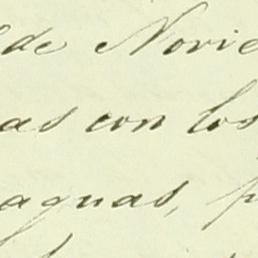 de Novie
as con los
aguas, p